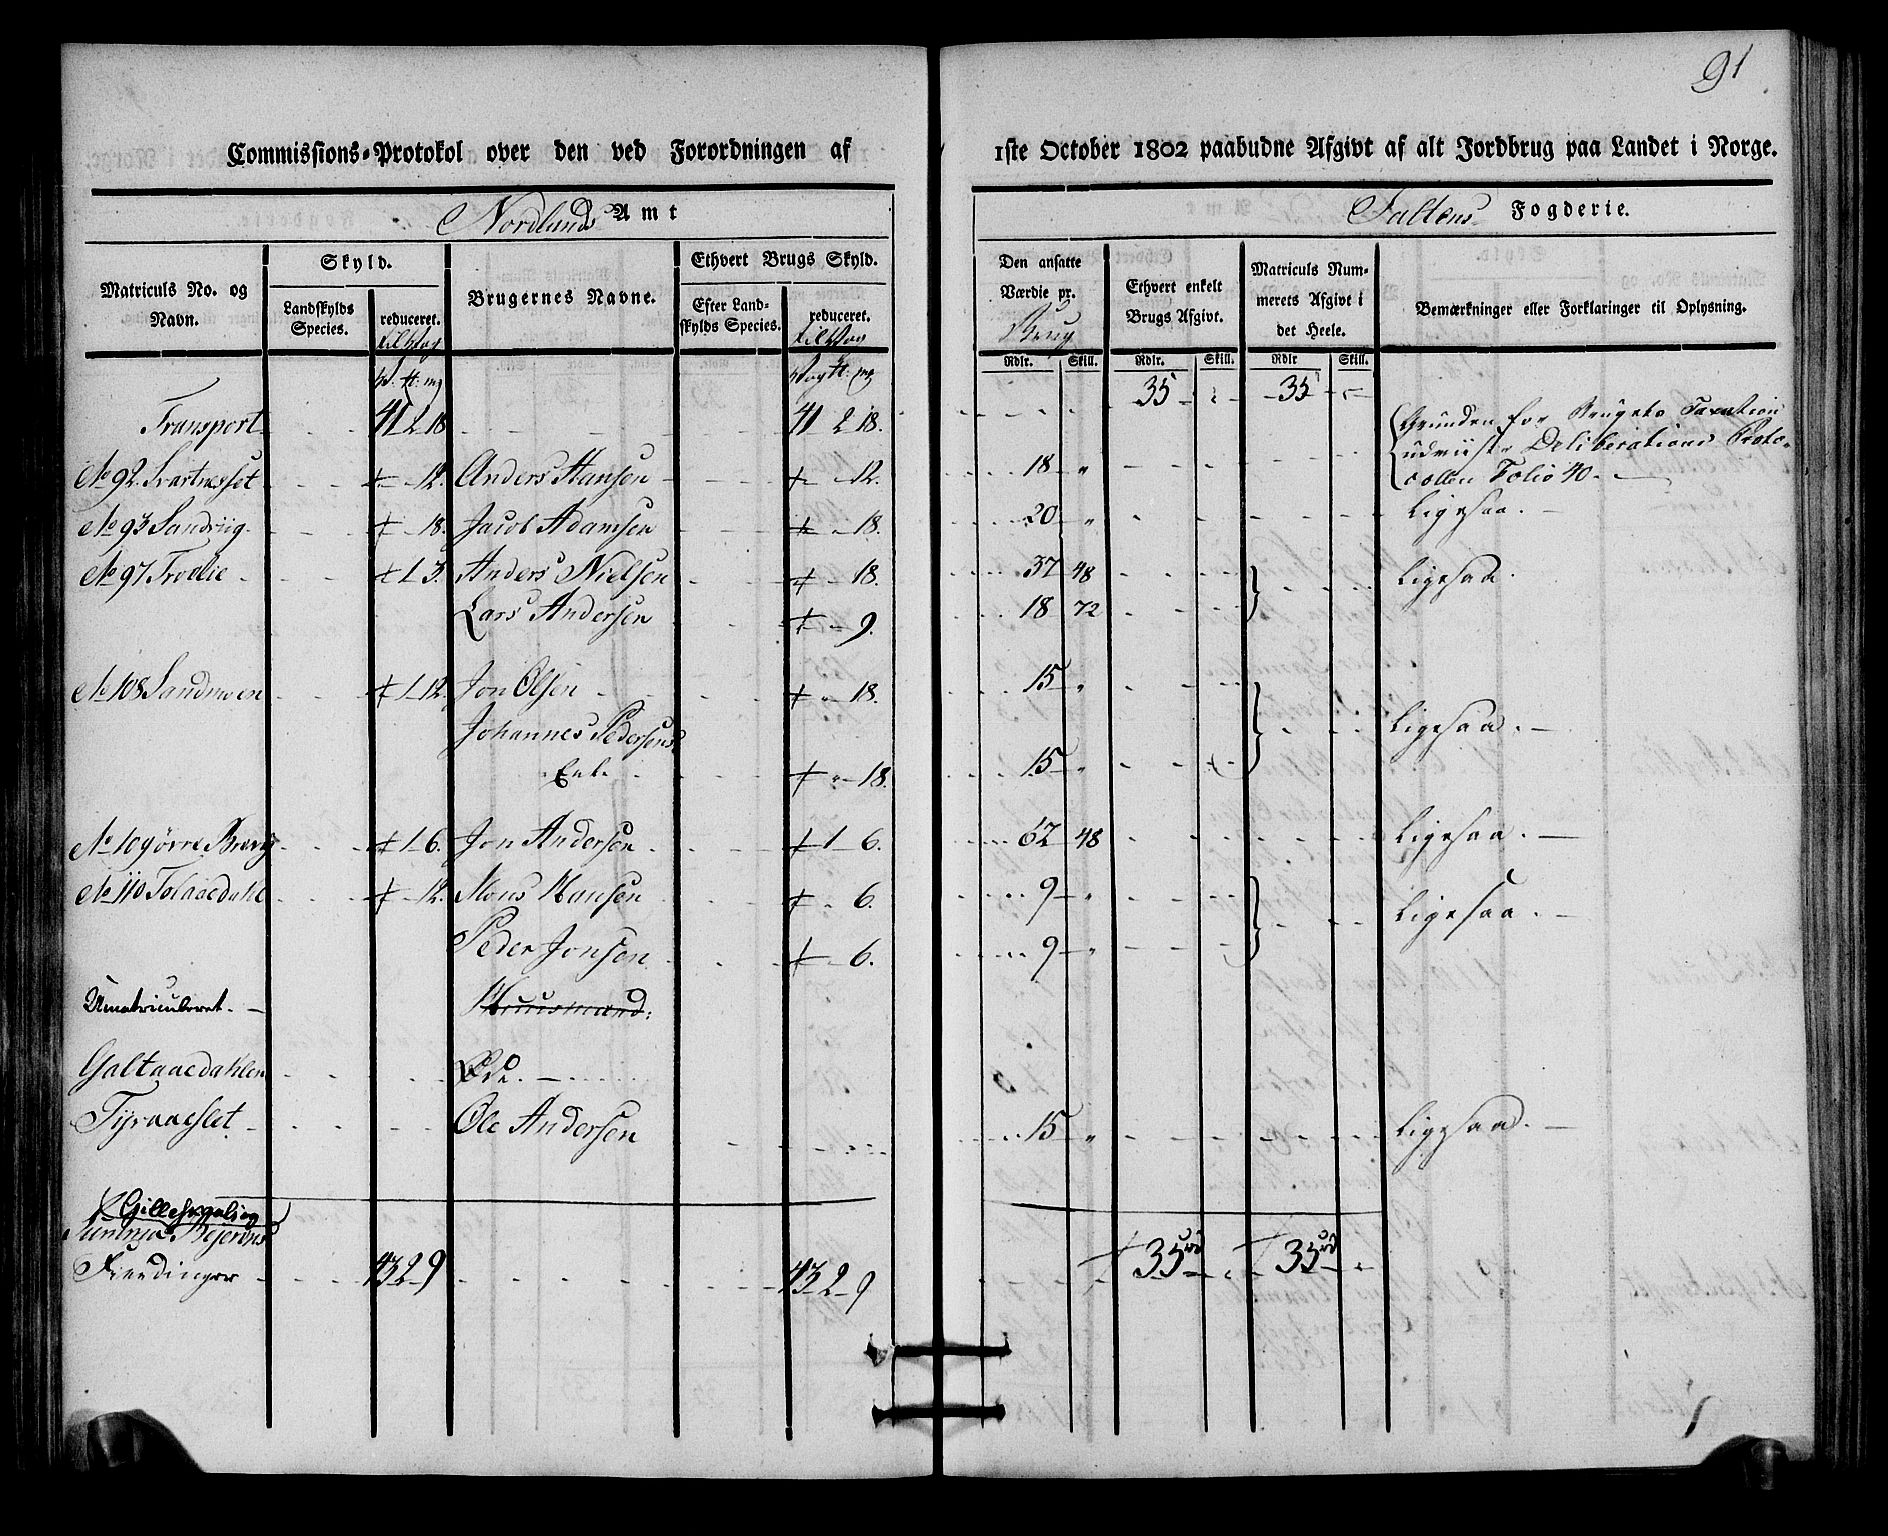 91
Commissions-Protokol over den ved Forordningen af 1ste October 1802 paabudne Afgivt af alt Jordbrug paa Landet i Norge.
Nordlands Amt
Saltens Fogderie.
Matriculs No. og Navn.
Skyld.
Landskylds Species.
reduceret.
Brugernes Navne.
Ethvert Brugs Skyld.
Efter Landskylds Species.
reduceret.
Den ansatte Værdie pr. Brug
Ethvert enkelt Brugs Afgivt.
Matriculs Nummerets Afgivt i det Heele.
Bemærkninger eller Forklaringer til Oplysning.
Rdlr. Skill. Rdlr. Skill. Rdlr Skill.
Transport 41 2 18 41 2 18. 35 35
Grunden for Brugets Taxation
udviiser Deliberations Proto-
collen Folio 40.
No 92. Svartnesset 12. Anders Hansen 12. 18 "
No 93 Sandviig 18. Jacob Adamsen 18. 20 " Ligesaa.
No 97 Trolie 1 3. Anders Nielsen 18. 37 48 Ligesaa.
Lars Andersen 9. 18 72
No 108 Sandmoen 1 12. Jon Olsen 18. 15 "
Johannes Pedersens Ligesaa.
Enke 18. 15 "
No 109 1 6. Jon Andersen 1 6. 62 48 Ligesaa.
No 110 Tolaaedahl 12. Mons Hansen 6. 9 " Ligesaa.
Peder Jonsen 6. 9 "
Umatriculeret. Huusmænd:
Galtaaedahlen Øde.
Tyraaeslet Ole Andersen 15 " Ligesaa.
Gilleskaal og
Bejerens
Fierdinger 43 2 9 43 2 9 35 35